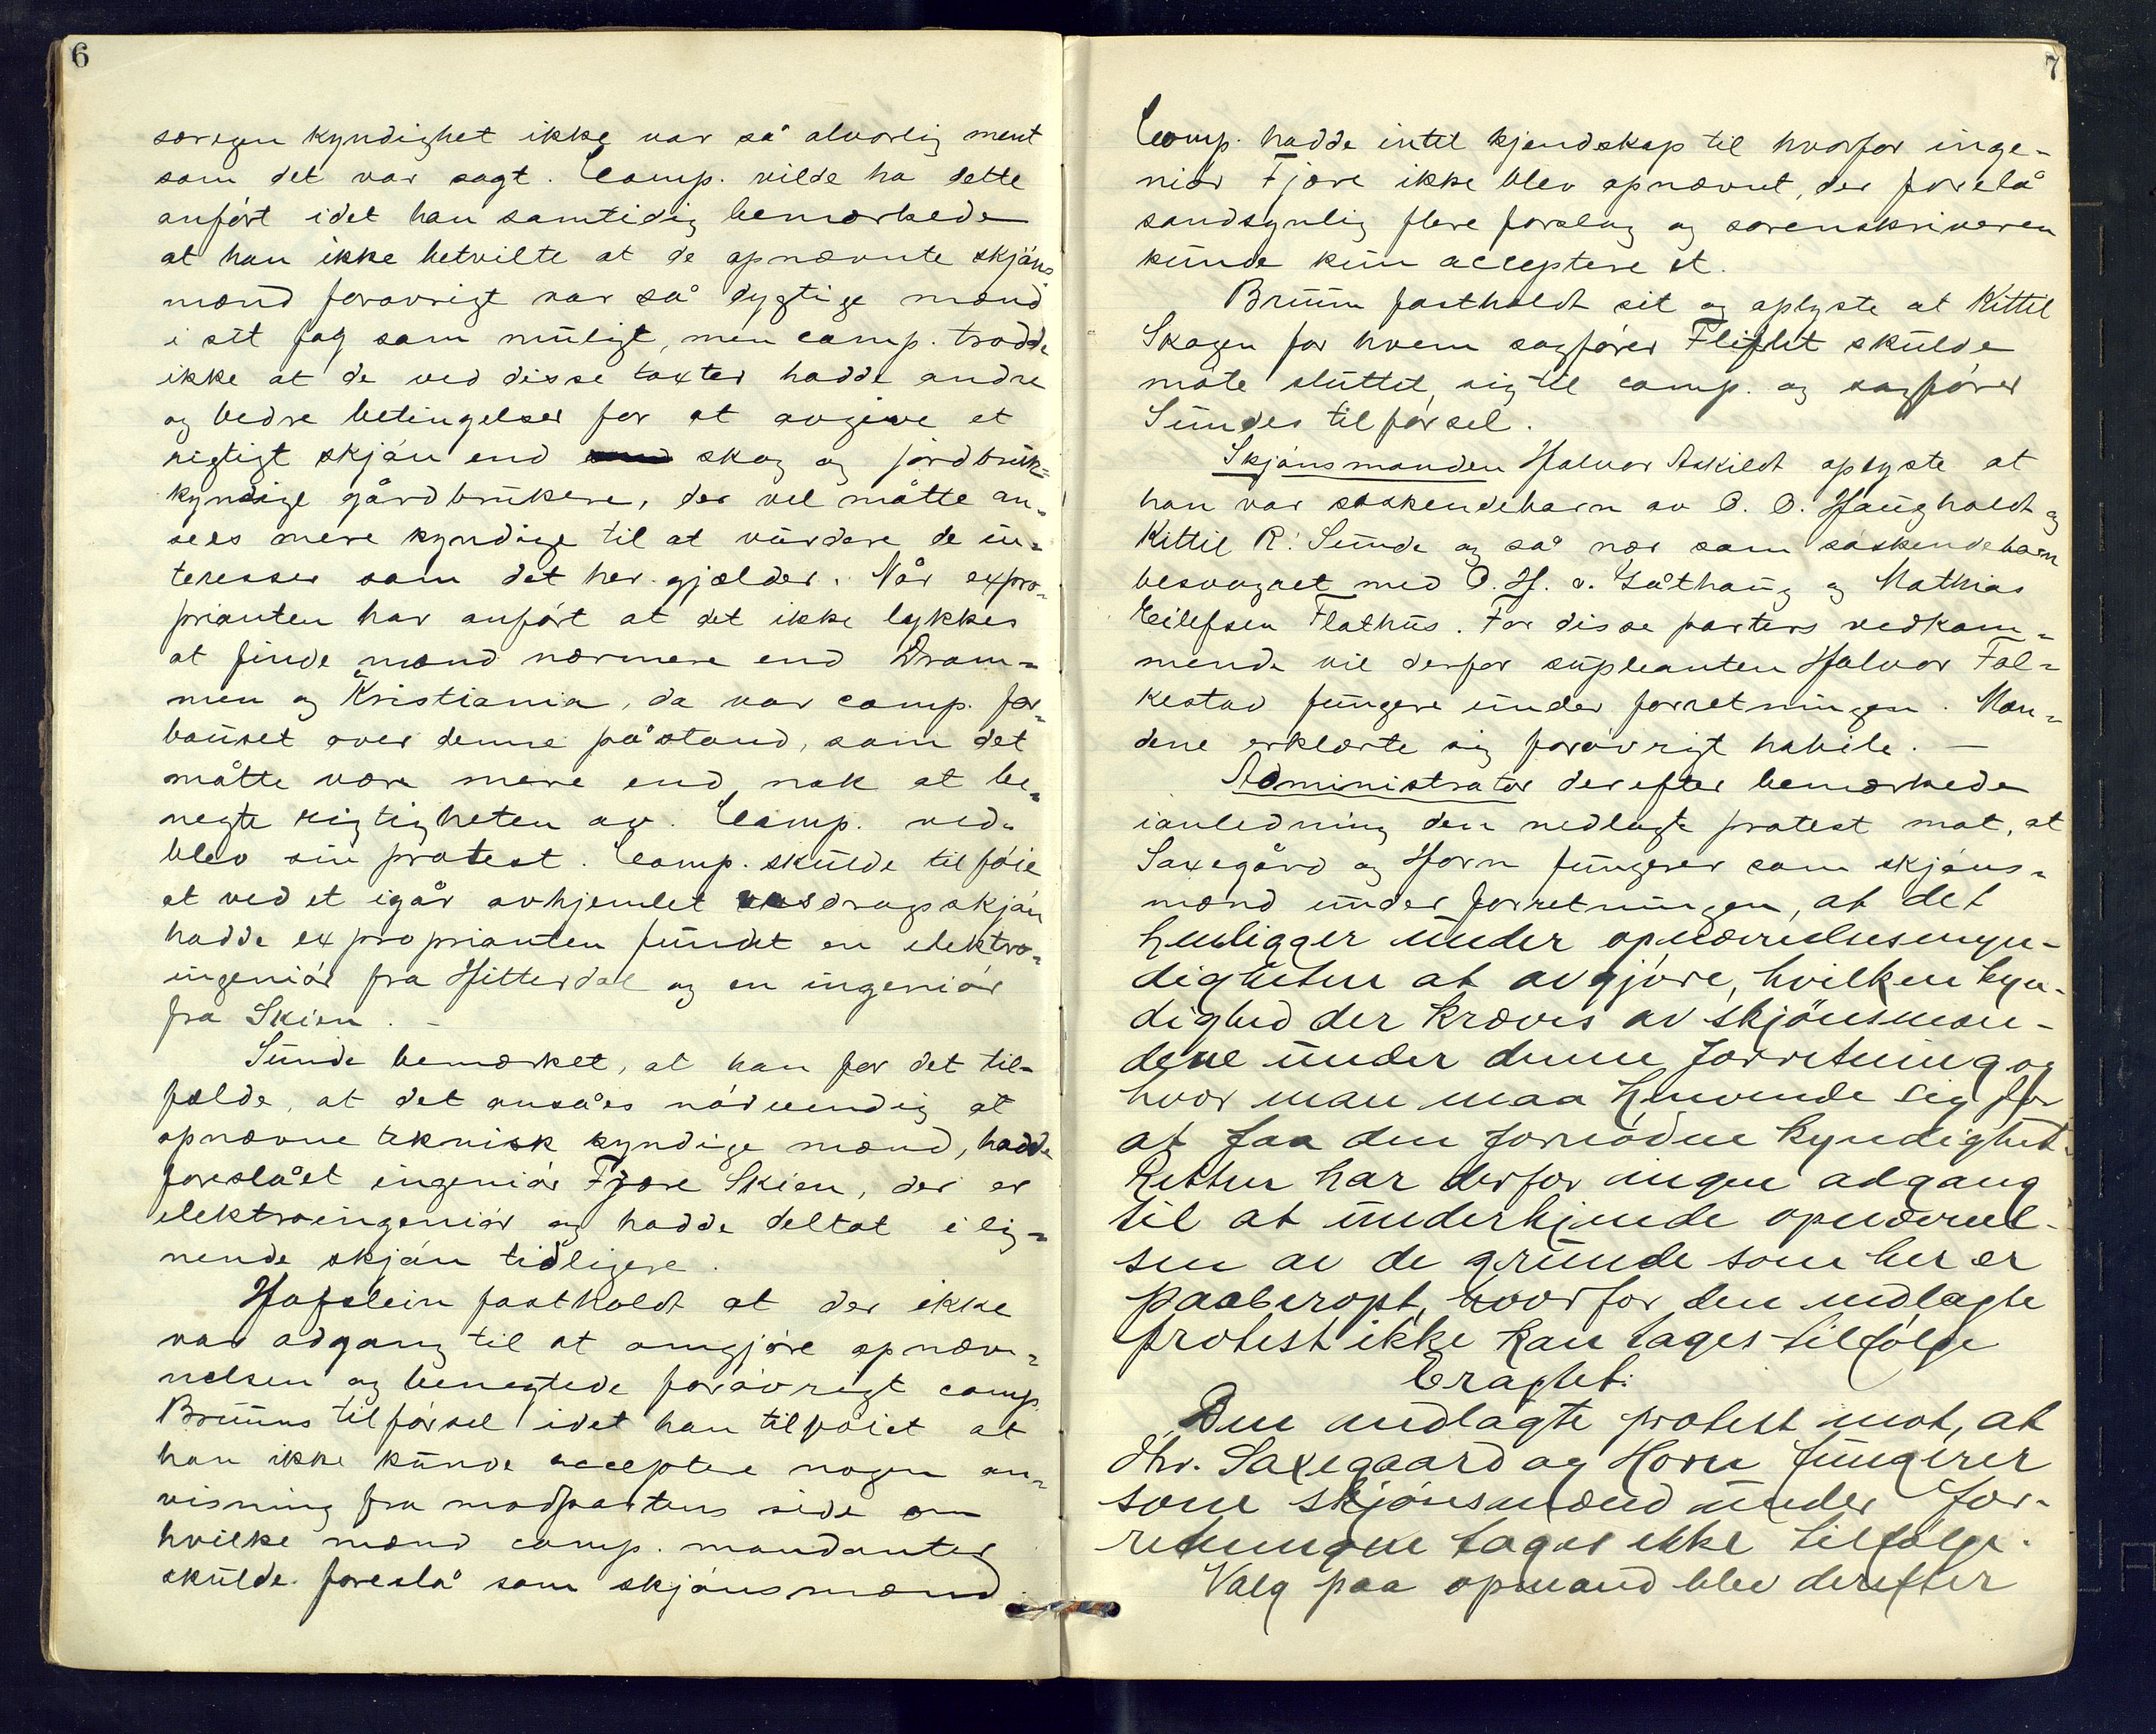 6
særegen kyndighet ikke var så alvorlig ment
som det var sagt. Comp. vilde ha dette
anført idet han samtidig bemærkede
at han ikke betvilte at de opnævnte skjöns
mænd forøvrigt var så dygtige mænd
i sit fag som muligt, men comp. trodde
ikke at de ved disse taxter hadde andre
og bedre betingelser for at avgive et
rigtigt skjön end skog og jordbruk=
kyndige gårdbrukere, der vel måtte an=
sees mere kyndige til at vurdere de in=
teresser som det her gjælder. Når expro=
prianten har anført at det ikke lykkes
at finde mænd nærmere end Dram=
men og Kristiania, da var comp. for=
bauset over denne påstand, som det
måtte være mere end nok at be=
negte rigtigheten av. Comp. ved=
blev sin protest. Comp. skulde tilføie
at ved et igår avhjemlet vasdragsskjön
hadde exproprianten fundet en elektro=
ingeniör fra Hitterdal og en ingeniör
fra Skien. –
Sunde bemærket, at han for det til=
fælde, at det ansåes nödvendig at
opnævne teknisk kyndige mænd, hadde
foreslået ingeniör Fjære Skien, der er
elektroingeniör og hadde deltat i lig=
nende skjön tidligere.
Hofslein fastholdt at der ikke
var adgang til at omgjöre opnæv=
nelsen og benegtede forövrigt comp.
Bruuns tilförsel idet han tilföiet at
han ikke kunde acceptere nogen an=
visning fra modpartens side om
hvilke mænd comp. mandanter
skulde foreslå som skjönsmænd.
7
Comp. hadde intet kjendskap til hvorfor inge=
niör Fjære ikke blev opnævnt, der forelå
sandsynlig flere forslag og sorenskriveren
kunde kun acceptere et.
Bruun fastholdt sit og oplyste at Kittil
Skogen for hvem sagförer Flight skulde
möte sluttet sig til comp. og sagförer
Sundes tilförsel.
Skjönsmanden Halvor Askildt oplyste at
han var söskendebarn av O. O. Haugholdt og
Kittil R. Sunde og så nær som söskendebarn
besvogret med O. H. v. Låthaug og Mathias
Eilefsen Flathus. For disse parters vedkom=
mende vil derfor supleanten Halvor Fol=
kestad fungere under forretningen. Mæn=
dene erklærte sig forövrigt habile. –
Administrator derefter bemærkede
ianledning den nedlagte protest mot, at
Saxegård og Horn fungerer som skjöns=
mænd under forretningen, at det
henligger under opnævnelsesmyn-
digheten at avgjöre, hvilken kyn-
dighed der kræves av skjönsmæn-
dene under denne forretning og
hvor man maa henvende sig for
at faa den fornödne kyndighet.
Retten har derfor ingen adgang
til at underkjende opnævnel-
sen av de grunde som her er
paaberopt, hvorfor den nedlagte
protest ikke kan tages tilfölge
Eragtet:
Den nedlagte protest mot, at
Hr. Saxegaard og Horn fungerer
som skjönsmænd under for-
retningen tages ikke tilfölge.
Valg paa opmand blev derefter